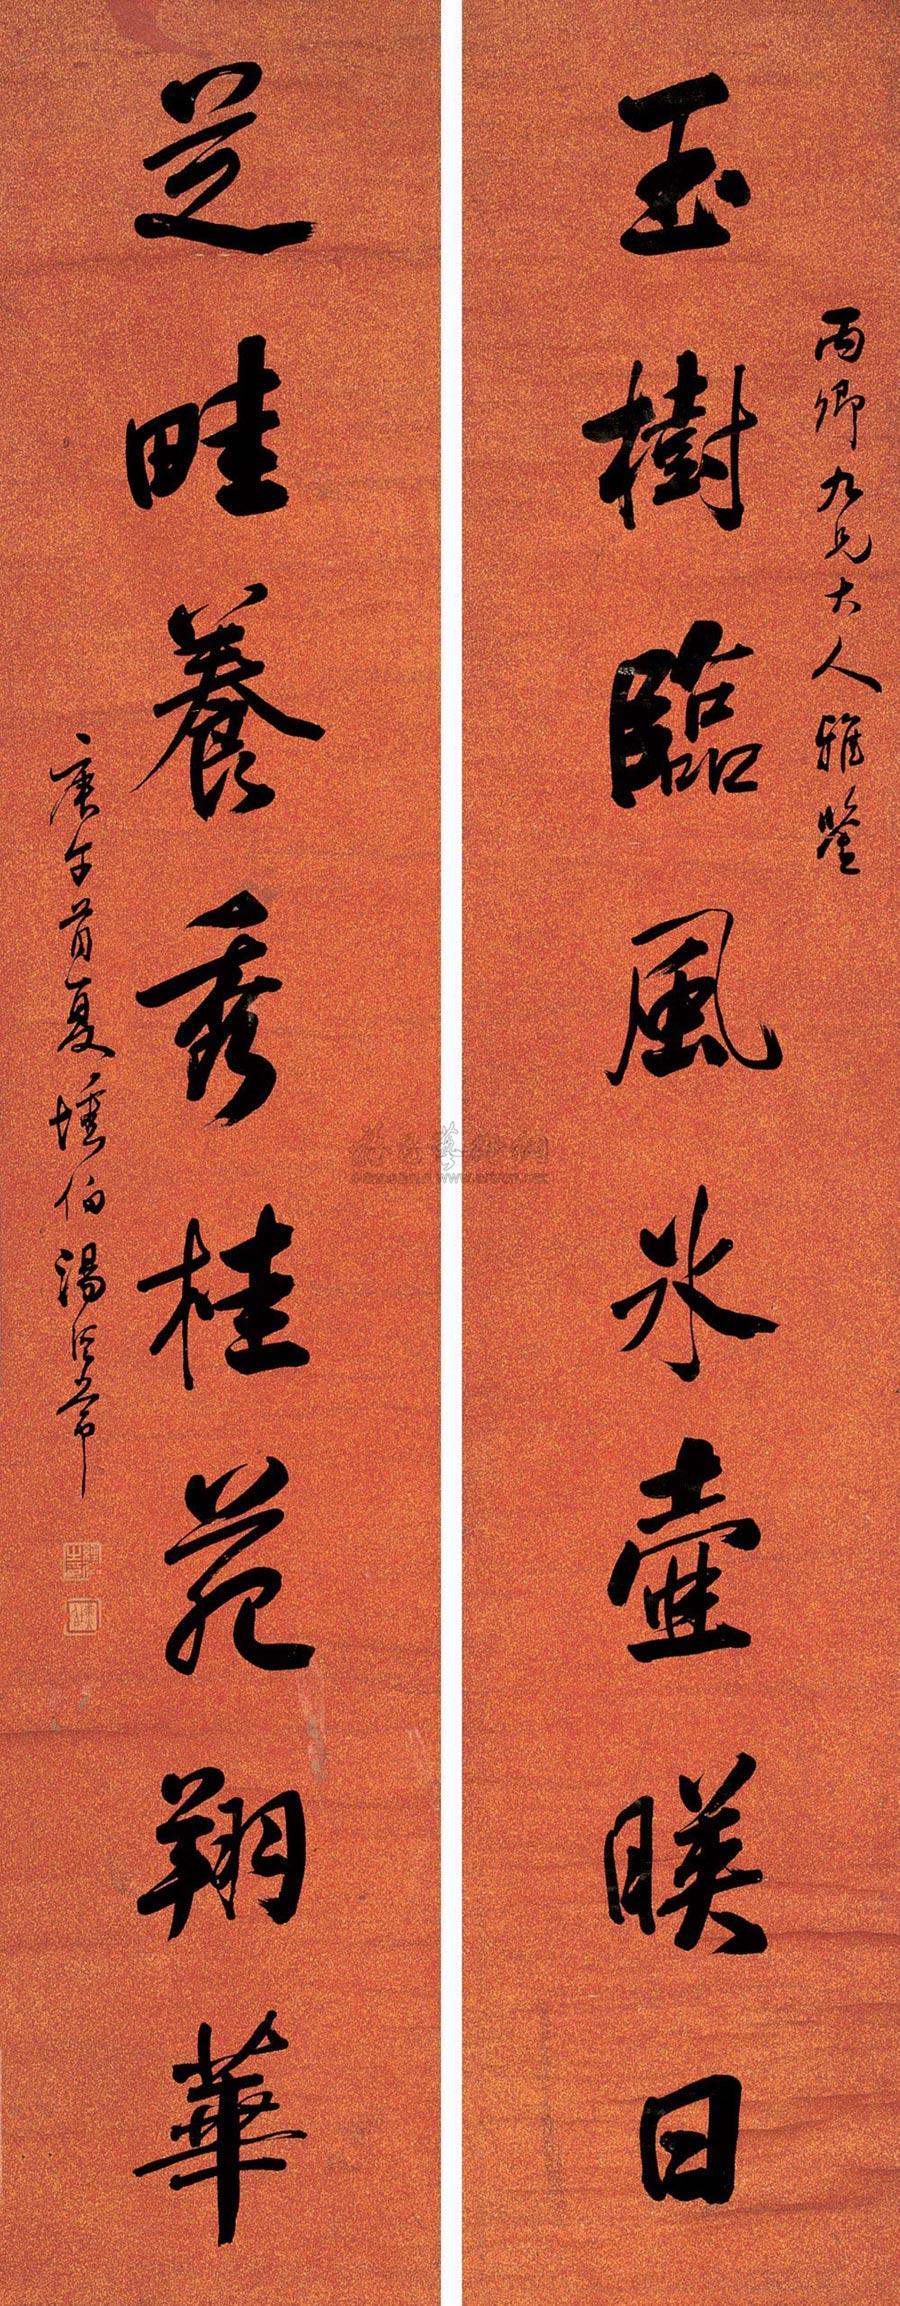 丙卿九兄大人雅鑒
玉樹臨風冰壺暎日
芝畦養秀桂苑翔華
庚午首夏壎伯湯經常